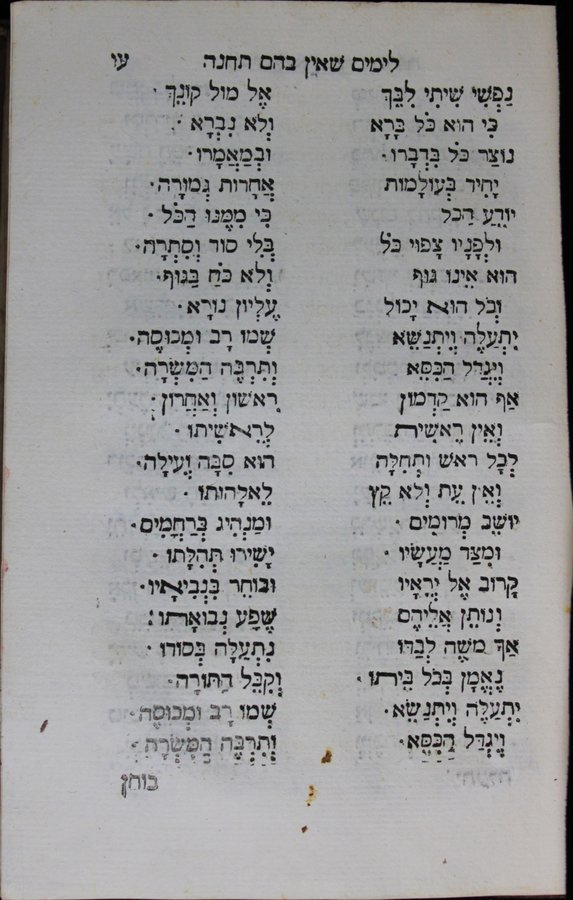 לימים שאין בהם תחנה עו
נַפְשִׁי שִׁיתִי לִבֵּךְ אֶל מוּל קוֹנֵךְ ·
כִּי הוּא כֹּל בָּרָא וְלֹא נִבְרָא ·
נוֹצַר כֹּל בִּדְבָרוֹ · וּבְמַאֲמָרוֹ ·
יָחִיד בְּעוֹלָמוֹת אַחֲרוּת גְּמוּרָה ·
יוֹדֵעַ הַכֹּל כִּי מִמֶּנּוּ הַכֹּל ·
וּלְפָנָיו צָפוּי כֹּל בְּלִי סוֹד וְסִתְרָה ·
הוּא אֵינוֹ גוּף וְלֹא כֹּחַ בַּגּוּף ·
וְכֹל הוּא יָכוֹל עֶלְיוֹן נוֹרָא ·
יִתְעַלֶּה וְיִתְנַשֵּׂא שְׁמוֹ רָב וּמְכוּסֶה ·
וִיגַדַּל הַכִּסֵּא וְתִרְבֶּה הַמִּשְׂרָה ·
אַף הוּא קַדְמוֹן רִאשׁוֹן וְאַחֲרוֹן ·
וְאֵין רֵאשִׁית לְרֵאשִׁיתוֹ ·
לְכָל ראש וּתְחִלָּה הוּא סִבָּה וְעִילָה ·
וְאֵין עֵת וְלֹא קֵץ לֵאלָהוּתוֹ ·
יוֹשֵׁב מְרוֹמִים · וּמַנְהִיג בְּרַחֲמִים ·
וּמִצַּר מַעֲשָׂיו · יָשִׁירוּ תְּהִלָּתוֹ ·
קָרוֹב אֶל יְרֵאָיו וּבוֹחֵר בִּנְבִיאָיו ·
וְנוֹתֵן אֲלֵיהֶם שֶׁפַע נְבוּאָתוֹ :
אַךְ מֹשֶׁה לְבַדּוֹ נִתְעַלָּה בְּסוֹדוֹ ·
נֶאֱמָן בְּכֹל בֵּיתוֹ · וְקִבֵּל הַתּוֹרָה ·
יִתְעַלֶּה וְיִתְנַשֵּׂא · שְׁמוֹ רָב וּמְכוּסֶה ·
וִיגַדַּל הַכִּסֵּא · וְתִרְבֶּה הַמִּשְׂרָה ·
בוחן